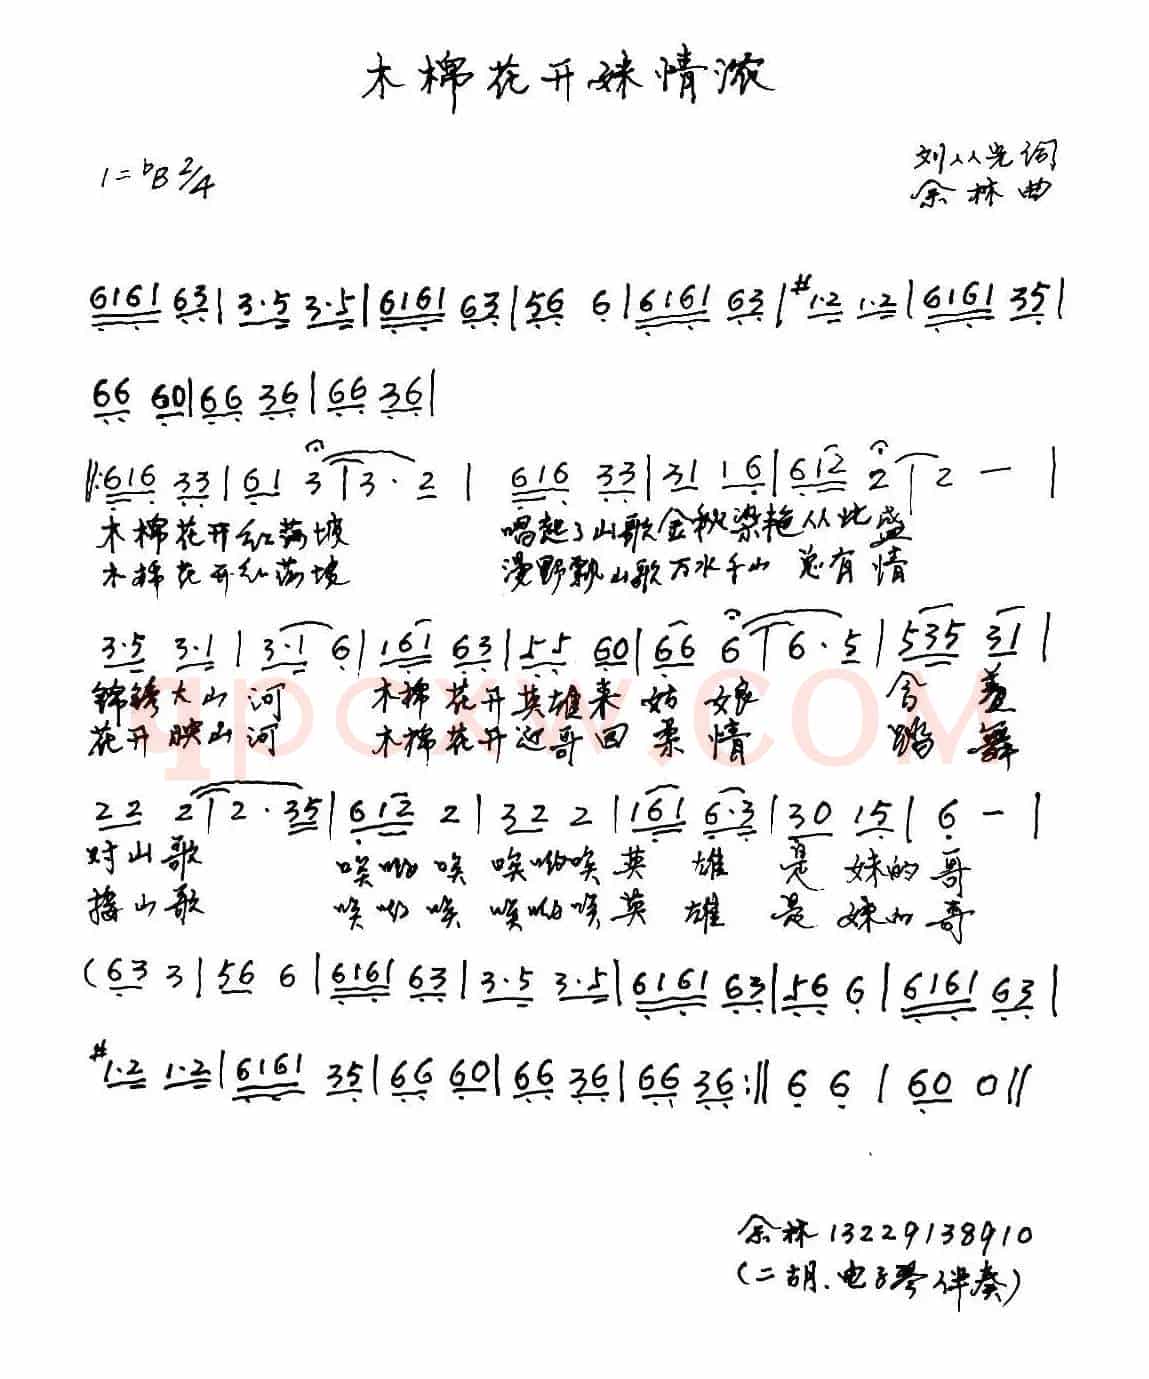 木棉花开妹情浓
1=♭B 2/4
刘从光词
余林曲
6161 63 | 3·5 3·5 | 6161 63 | 56 6 | 6161 63 | #1·2 1·2 | 6161 35 |
66 60 | 66 36 | 66 36 |
‖: 616 33 | 61 3 | 3· 2 | 616 33 | 31 1 6 | 612 2 | 2 — |
木棉花开红满坡 唱起了山歌金秋染艳从此盛
木棉花开红满坡 漫野飘山歌万水千山总有情
3·5 3·1 | 3·1 6 | 161 63 | 55 60 | 66 6 | 6· 5 | 535 31 |
锦绣大山河 木棉花开英雄来姑娘含羞
花开映山河 木棉花开迎哥回柔情踏舞
22 2 | 2· 35 | 612 2 | 322 2 | 161 6·3 | 30 15 | 6 — |
对山歌 唉哟唉 唉哟唉英雄是妹的哥
播山歌 唉哟唉 唉哟唉英雄是妹的哥
(63 3 | 56 6 | 6161 63 | 3·5 3·5 | 6161 63 | 56 6 | 6161 63 |
#1·2 1·2 | 6161 35 | 66 60 | 66 36 | 66 36 :‖ 6 6 | 60 0 ‖
qpcxw.com
余林13229138910
(二胡.电子琴伴奏)